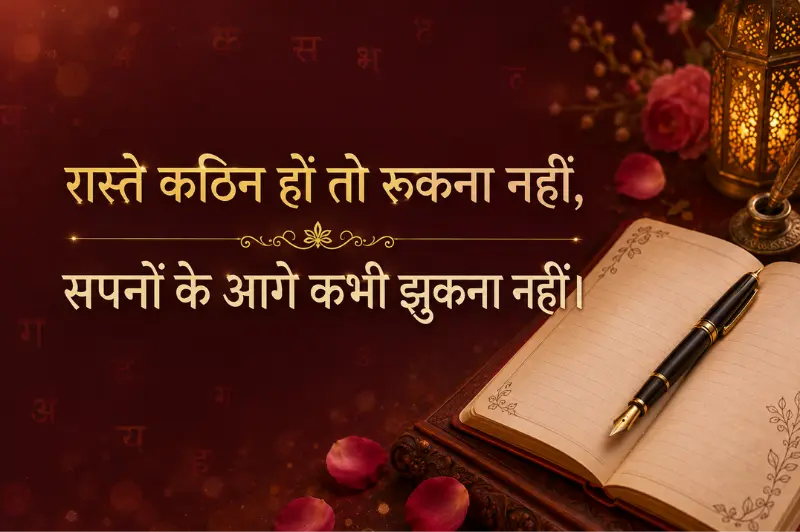 रास्ते कठिन हों तो रूकना नहीं,
सपनों के आगे कभी झुकना नहीं।